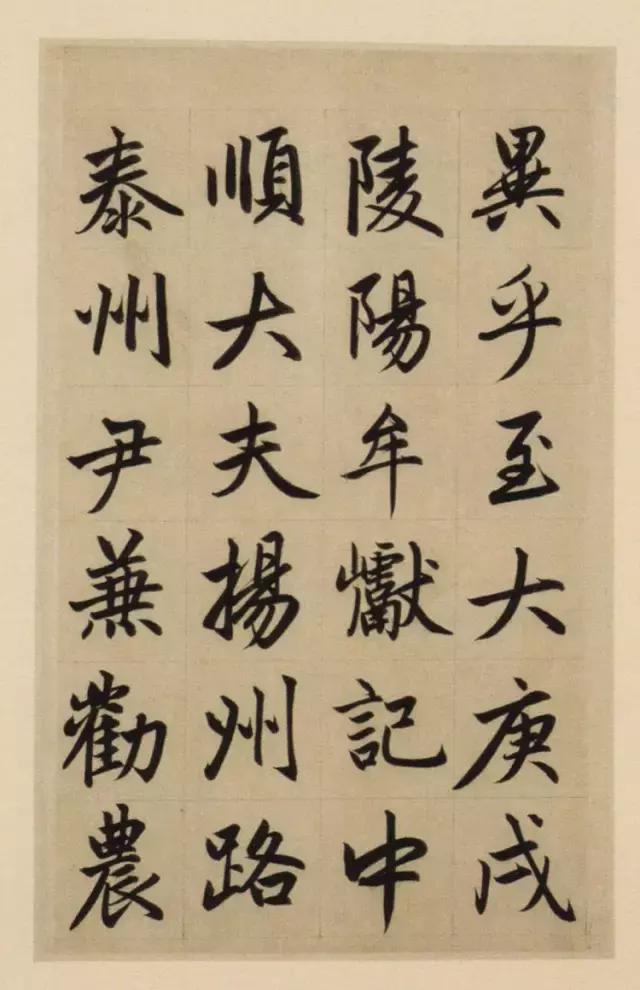 異乎至大庚戌
陵陽牟巘記中
順大夫揚州路
泰州尹兼勸農